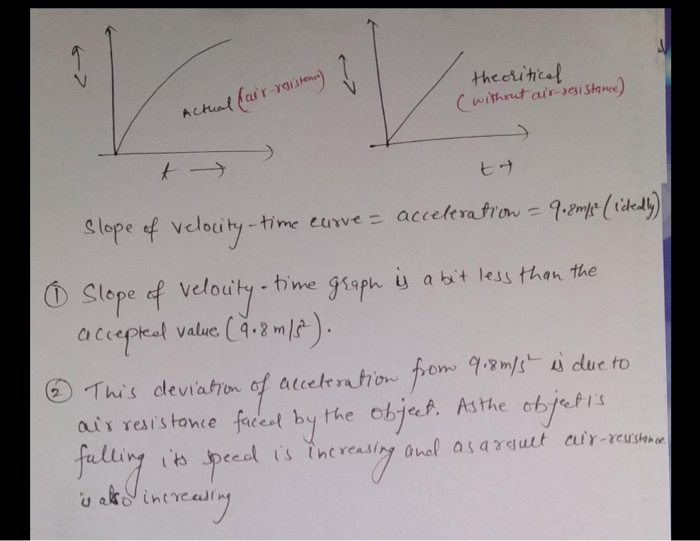 V
Actual (air-resistance)
t →
V
theoritical
(without air-resistance)
t →
Slope of velocity-time curve = acceleration = 9.8m/s² (ideally)
① Slope of velocity-time graph is a bit less than the
accepted value (9.8 m/s²).
② This deviation of acceleration from 9.8m/s² is due to
air resistance faced by the object. As the object is
falling its speed is increasing and as a result air-resistance
is also increasing